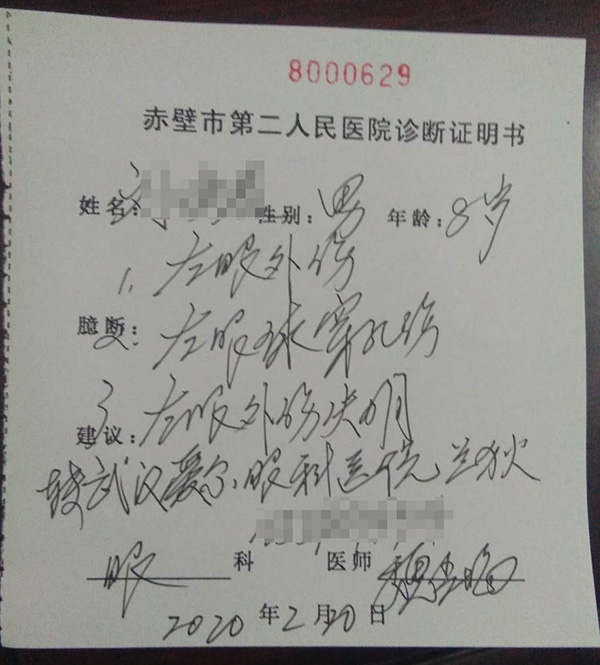 8000629
赤壁市第二人民医院诊断证明书
姓名: 性别: 男 年龄: 8岁
1. 左眼外伤
臆断: 2. 左眼球穿孔伤
建议: 3 左眼外伤失明
转武汉爱尔眼科医院
眼 科 医师
2020年2月20日